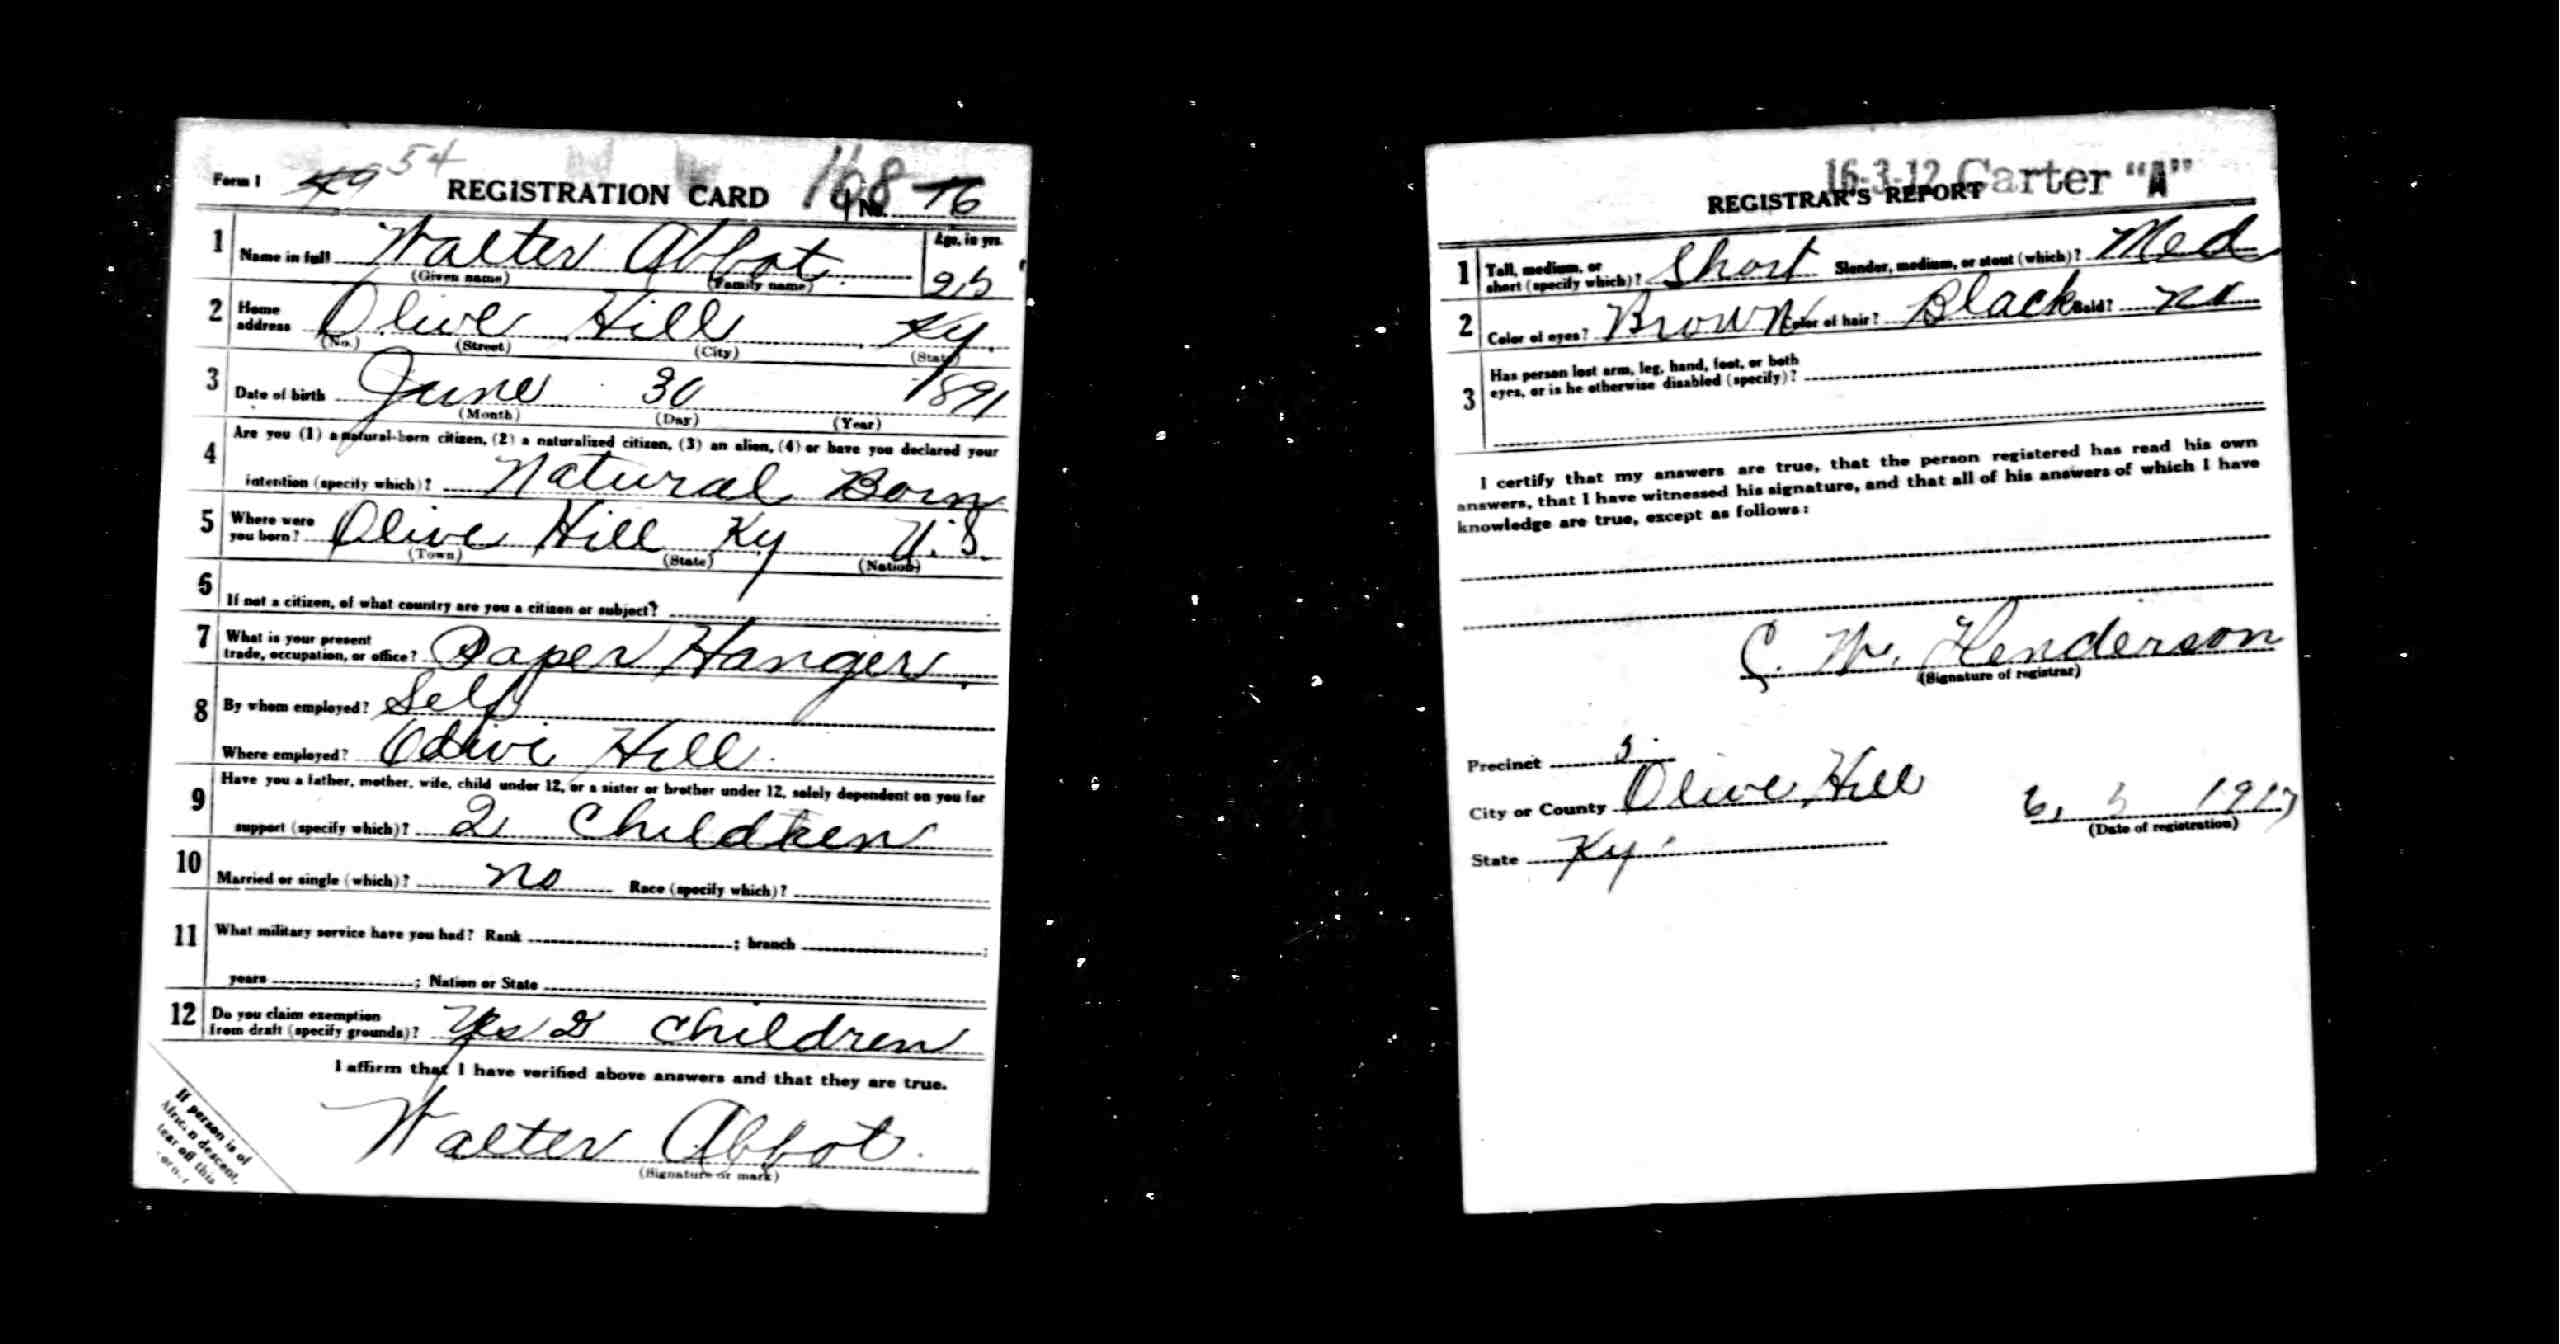 54
Form 1 49 REGISTRATION CARD 168 No. 76
1 Name in full Walter Abbot Age, in yrs. 25
(Given name) (Family name)
2 Home address Olive Hill Ky.
(No.) (Street) (City) (State)
3 Date of birth June 30 1891
(Month) (Day) (Year)
4 Are you (1) a natural-born citizen, (2) a naturalized citizen, (3) an alien, (4) or have you declared your
intention (specify which)? Natural Born
5 Where were you born? Olive Hill Ky U.S.
(Town) (State) (Nation)
6 If not a citizen, of what country are you a citizen or subject?
7 What is your present trade, occupation, or office? Paper Hanger
8 By whom employed? Self
Where employed? Olive Hill
9 Have you a father, mother, wife, child under 12, or a sister or brother under 12, solely dependent on you for
support (specify which)? 2 Children
10 Married or single (which)? no Race (specify which)?
11 What military service have you had? Rank ; branch ;
years ; Nation or State
12 Do you claim exemption from draft (specify grounds)? Yes 2 children
I affirm that I have verified above answers and that they are true.
Walter Abbot
(Signature or mark)
If person is of
African descent,
tear off this
corner
16-3-12 Carter "A"
REGISTRAR'S REPORT
1 Tall, medium, or short (specify which)? Short Slender, medium, or stout (which)? Med
2 Color of eyes? Brown Color of hair? Black Bald? no
3 Has person lost arm, leg, hand, foot, or both
eyes, or is he otherwise disabled (specify)?
I certify that my answers are true, that the person registered has read his own
answers, that I have witnessed his signature, and that all of his answers of which I have
knowledge are true, except as follows:
C. W. Henderson
(Signature of registrar)
Precinct 5
City or County Olive Hill 6, 5 1917
(Date of registration)
State Ky